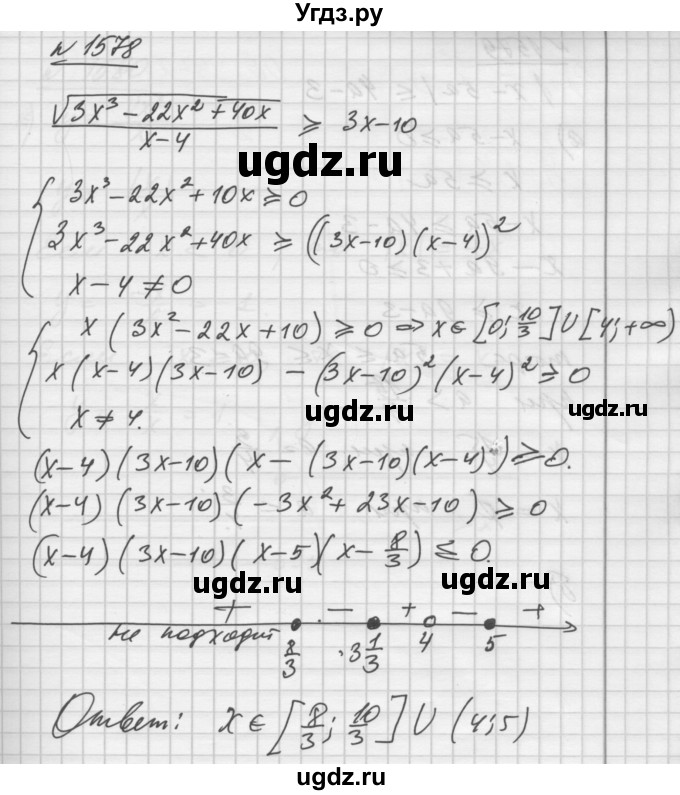 Угдз.ру
№ 1578
√(3x³ − 22x² + 40x) / (x−4) ⩾ 3x−10
ugdz.ru
{ 3x³ − 22x² + 10x ⩾ 0
3x³ − 22x² + 40x ⩾ ((3x−10)(x−4))²
x − 4 ≠ 0
{ x(3x² − 22x + 10) ⩾ 0 ⇒ x ∈ [0; 10/3] ∪ [4; +∞)
x(x−4)(3x−10) − (3x−10)²(x−4)² ⩾ 0
ugdz.ru ugdz.ru
x ≠ 4.
(x−4)(3x−10)(x − (3x−10)(x−4)) ⩾ 0.
(x−4)(3x−10)(−3x² + 23x − 10) ⩾ 0
ugdz.ru
(x−4)(3x−10)(x−5)(x − 8/3) ⩽ 0.
ugdz.ru
+ − + − +
не подходит 8/3 3 1/3 4 5
Ответ: x ∈ [8/3; 10/3] ∪ (4; 5)
ugdz.ru
ugdz.ru